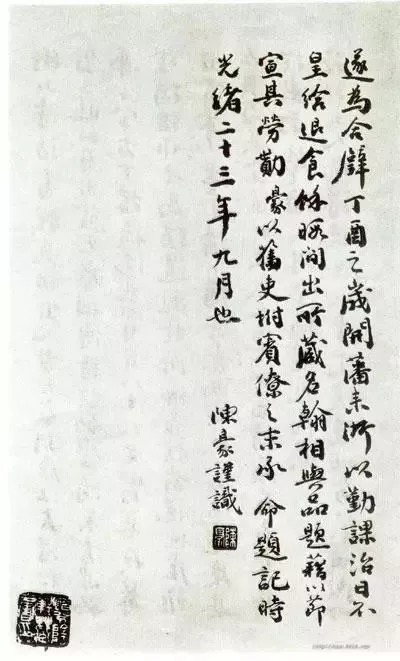 遂為合璧丁酉之歲開藩来浙以勤課治日不
皇給退食餘暇間出所藏名翰相與品題藉以節
宣其勞勩豪以舊吏坿賓僚之末承命題記時
光緒二十三年九月也
陳豪謹識